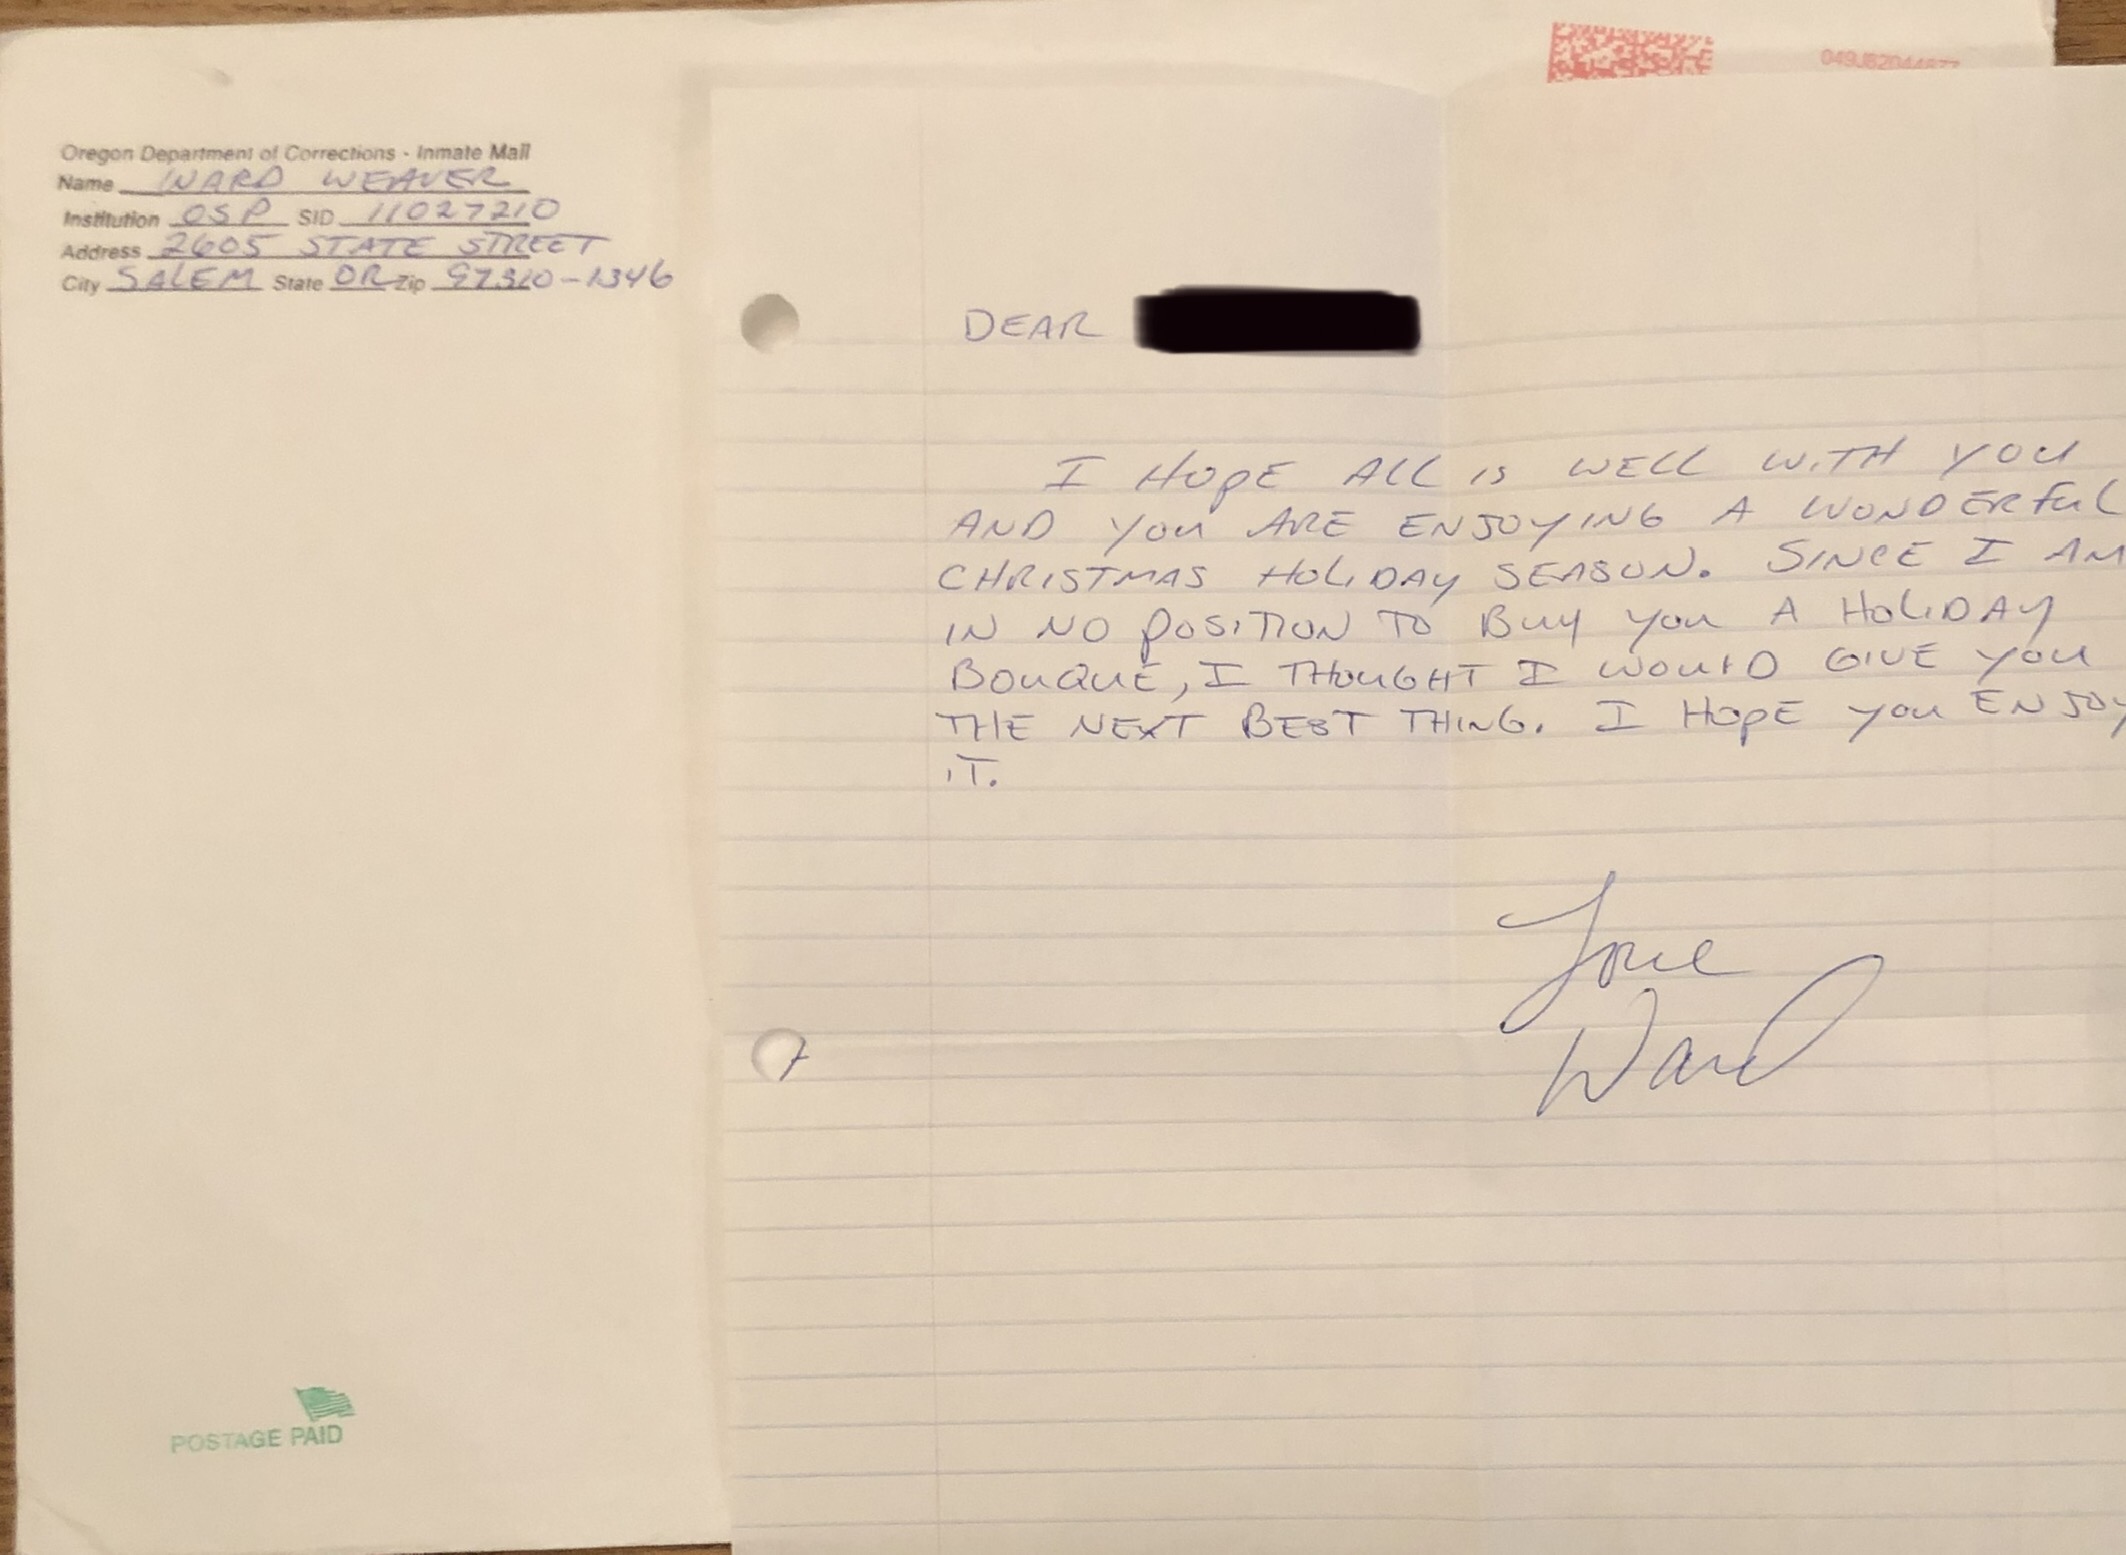 Oregon Department of Corrections - Inmate Mail
Name WARD WEAVER
Institution OSP SID 11027210
Address 2605 STATE STREET
City SALEM State OR Zip 97310-1346
049J82044877
DEAR
I HOPE ALL IS WELL WITH YOU
AND YOU ARE ENJOYING A WONDERFUL
CHRISTMAS HOLIDAY SEASON. SINCE I AM
IN NO POSITION TO BUY YOU A HOLIDAY
BOUQUE, I THOUGHT I WOULD GIVE YOU
THE NEXT BEST THING. I HOPE YOU ENJOY
IT.
Love
Ward
POSTAGE PAID